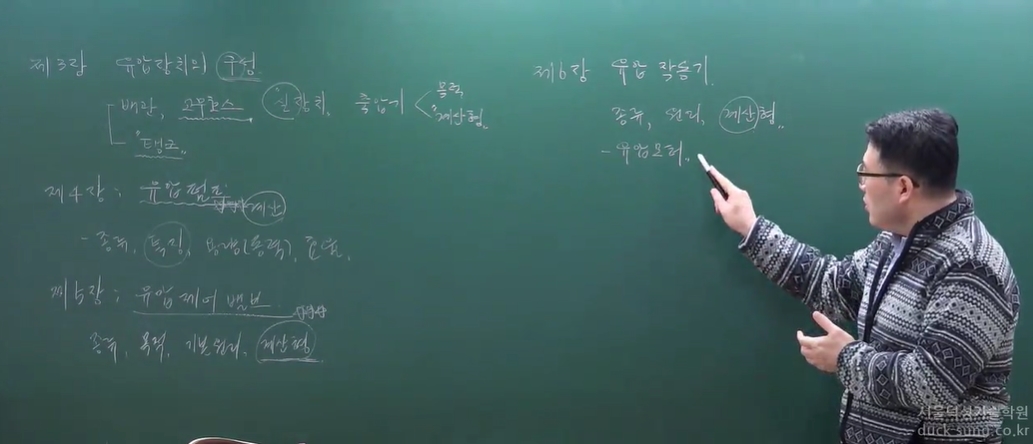 제3장 유압장치의 구성
배관, 고무호스 실장치, 축압기 목적
계산형
탱크
제4장: 유압펌프 계산
- 종류, 특징, 동력, 효율,
제5장: 유압제어 밸브
종류, 목적, 기본원리, 계산형
제6장 유압 작동기
종류, 원리, 계산형
- 유압모터
서울덕성기술학원
duck-sung.co.kr